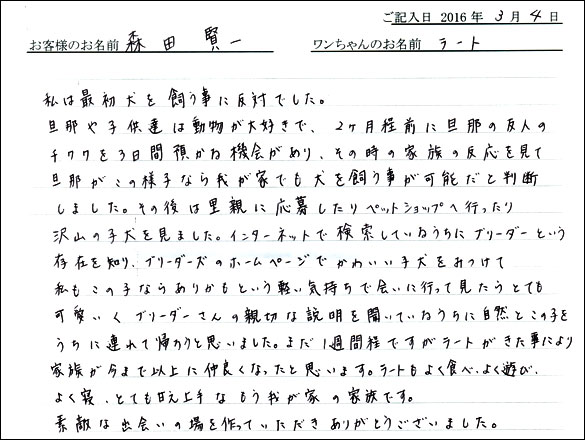 ご記入日 2016年 3月 4日
お客様のお名前 森田 賢一 ワンちゃんのお名前 ラート
私は最初犬を飼う事に反対でした。
旦那や子供達は動物が大好きで、2ヶ月程前に旦那の友人の
チワワを3日間預かる機会があり、その時の家族の反応を見て
旦那がこの様子なら我が家でも犬を飼う事が可能だと判断
しました。その後は里親に応募したりペットショップへ行ったり
沢山の子犬を見ました。インターネットで検索しているうちにブリーダーという
存在を知り、ブリーダーズのホームページでかわいい子犬をみつけて
私もこの子ならありかもという軽い気持ちで会いに行って見たらとても
可愛いくブリーダーさんの親切な説明を聞いているうちに自然とこの子を
うちに連れて帰ろうと思いました。まだ1週間程ですがラートがきた事により
家族が今まで以上に仲良くなったと思います。ラートもよく食べ、よく遊び、
よく寝、とても甘え上手なもう我が家の家族です。
素敵な出会いの場を作っていただきありがとうございました。